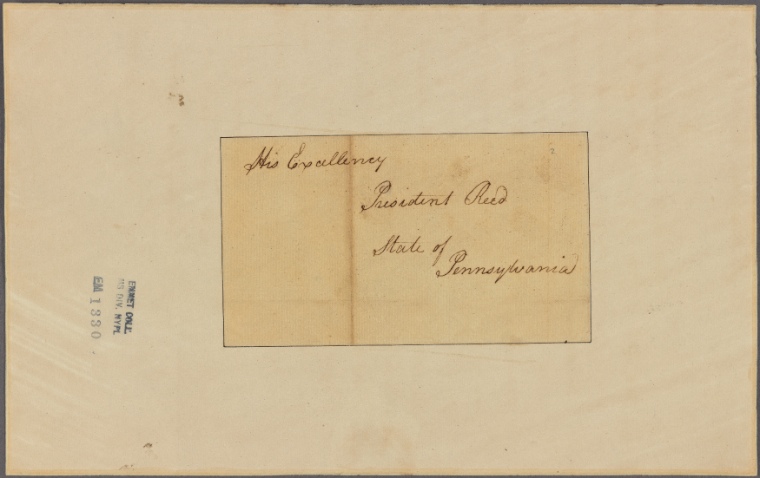 His Excellency
President Reed
State of
Pennsylvania
EMMET COLL.
MS DIV. NYPL
EM 1330